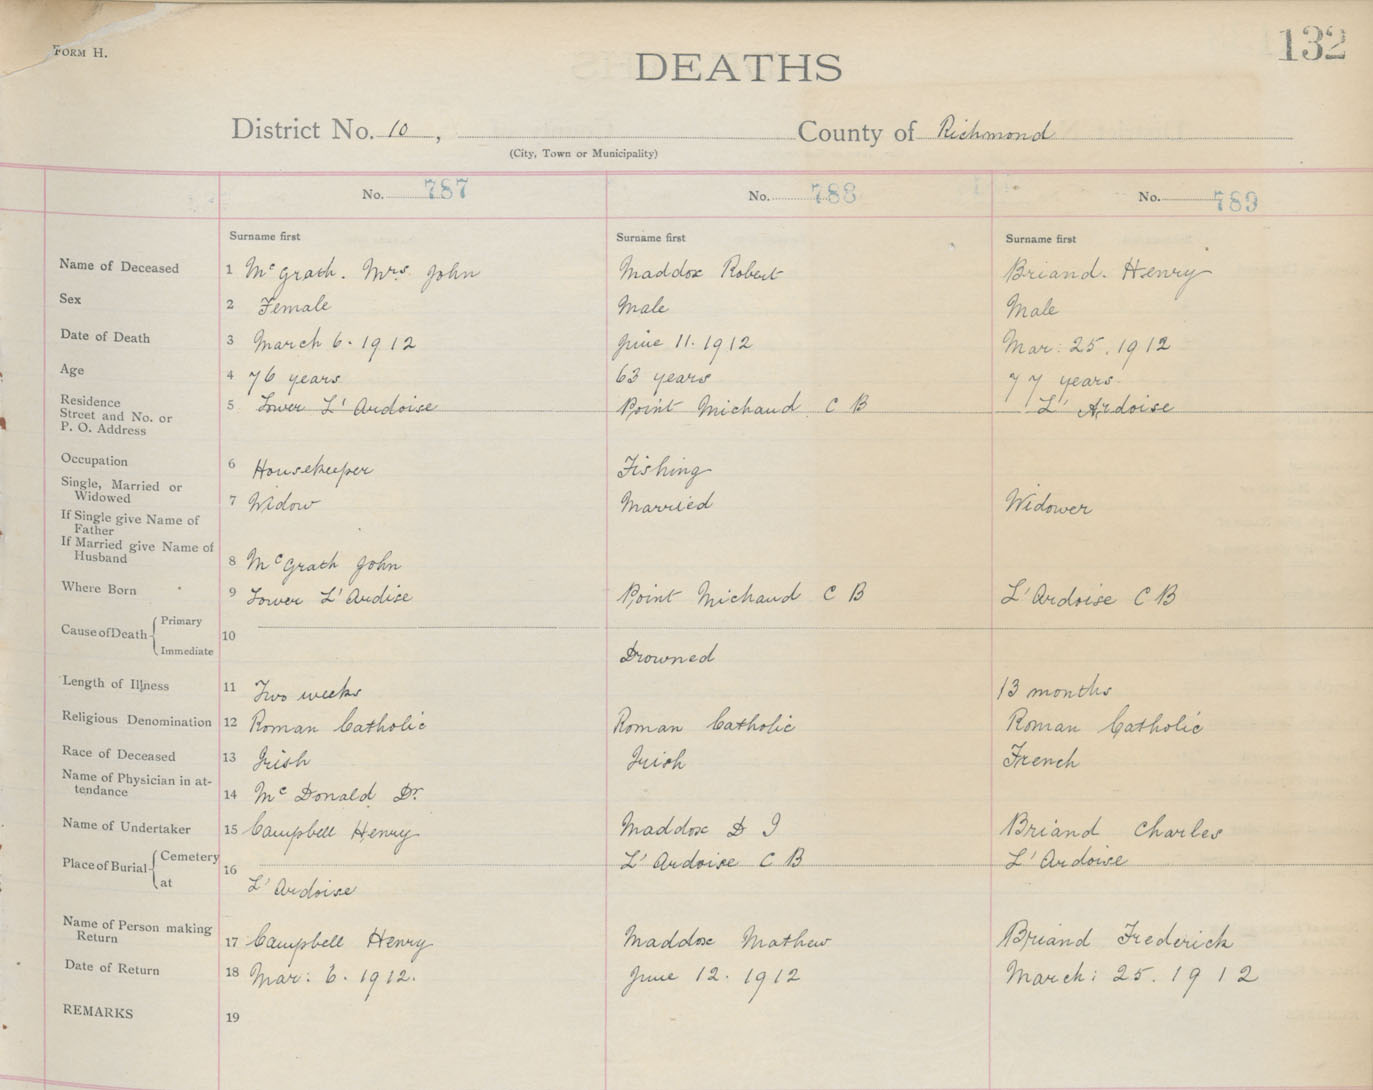 FORM H.
132
DEATHS
District No. 10 , County of Richmond
(City, Town or Municipality)
No. 787 No. 788 No. 789
Surname first Surname first Surname first
Name of Deceased 1 McGrath. Mrs. John Maddox Robert Briand. Henry
Sex 2 Female Male Male
Date of Death 3 March 6. 1912 June 11. 1912 Mar: 25. 1912
Age 4 76 years 63 years 77 years
Residence
Street and No. or 5 Lower L'Ardoise Point Michaud C B L'Ardoise
P. O. Address
Occupation 6 Housekeeper Fishing
Single, Married or
Widowed 7 Widow Married Widower
If Single give Name of
Father
If Married give Name of
Husband 8 McGrath John
Where Born 9 Lower L'Ardise Point Michaud C B L'Ardoise C B
Primary
Cause of Death 10
Immediate Drowned
Length of Illness 11 Two weeks 13 months
Religious Denomination 12 Roman Catholic Roman Catholic Roman Catholic
Race of Deceased 13 Irish Irish French
Name of Physician in at-
tendance 14 McDonald Dr.
Name of Undertaker 15 Campbell Henry Maddox D J Briand Charles
Cemetery L'Ardoise C B L'Ardoise
Place of Burial 16
at L'Ardoise
Name of Person making
Return 17 Campbell Henry Maddox Mathew Briand Frederick
Date of Return 18 Mar: 6. 1912. June 12. 1912 March: 25. 1912
REMARKS 19